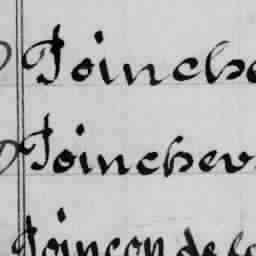 Poinche
Poinchev
Poinçon de la